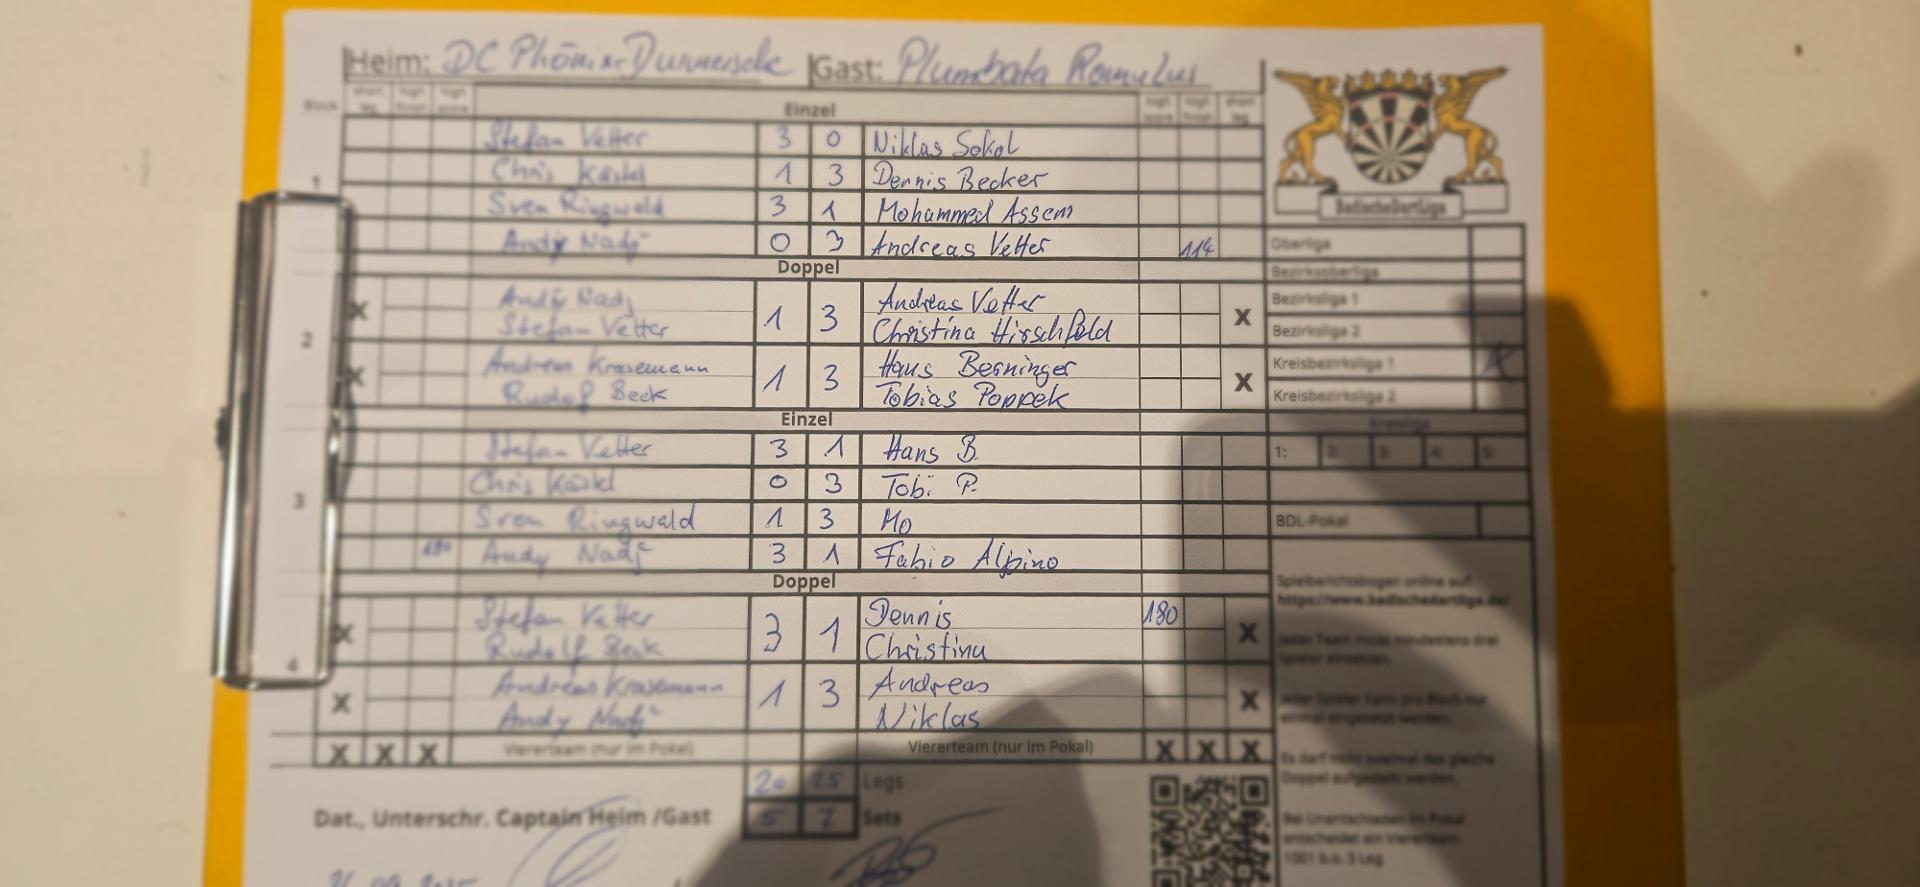 Heim: DC Phönix Durmersche Gast: Plumbata Romulus
Block short leg high finish high score Einzel high score high finish short leg
Stefan Vetter 3 0 Niklas Sokol
1 Chris Kästel 1 3 Dennis Becker
Sven Ringwald 3 1 Mohammed Assem
Andy Nadj 0 3 Andreas Vetter 114
Doppel
X Andy Nadj 1 3 Andreas Vetter X
2 Stefan Vetter Christina Hirschfeld
X Andreas Krasemann 1 3 Hans Berninger X
Rudolf Beck Tobias Poppek
Einzel
Stefan Vetter 3 1 Hans B.
Chris Kästel 0 3 Tobi P.
3 Sven Ringwald 1 3 Mo
180 Andy Nadj 3 1 Fabio Alpino
Doppel
X Stefan Vetter 3 1 Dennis 180 X
4 Rudolf Beck Christina
X Andreas Krasemann 1 3 Andreas X
Andy Nadj Niklas
X X X Viererteam (nur im Pokal) Viererteam (nur im Pokal) X X X
20 25 Legs
Dat., Unterschr. Captain Heim /Gast 5 7 Sets
BadischeDartLiga
Oberliga
Bezirksoberliga
Bezirksliga 1
Bezirksliga 2
Kreisbezirksliga 1 X
Kreisbezirksliga 2
Kreisliga
1: 2: 3: 4: 5:
BDL-Pokal
Spielberichtsbogen online auf:
https://www.badischedartliga.de/
Jedes Team muss mindestens drei
Spieler einsetzen.
Jeder Spieler kann pro Block nur
einmal eingesetzt werden.
Es darf nicht zweimal das gleiche
Doppel aufgestellt werden.
Bei Unentschieden im Pokal
entscheidet ein Viererteam
1001 b.o. 3 Leg